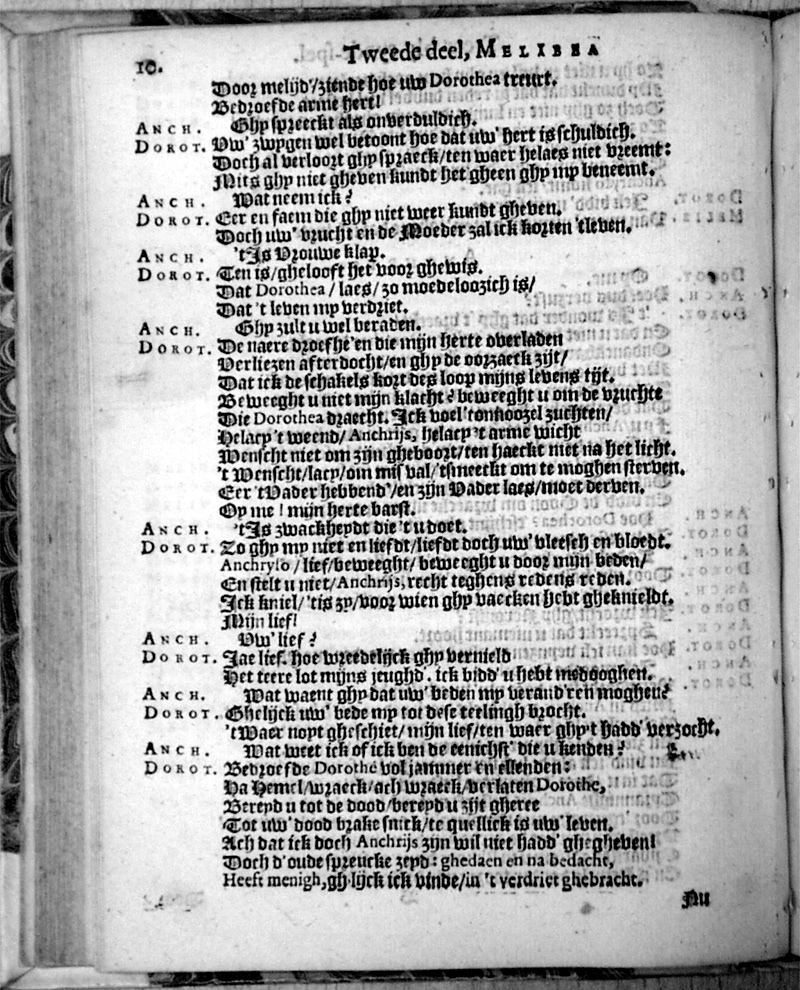 10.
Tweede deel, MELIBEA
Door melijd'/ziende hoe uw Dorothea treurt.
Bedroefde arme hert!
ANCH. Ghy spreeckt als onverduldich.
DOROT. Uw' zwygen wel betoont hoe dat uw' hert is schuldich.
Doch al verloort ghy spraeck/ten waer helaes niet vreemt:
Mits ghy niet gheven kundt het gheen ghy my beneemt.
ANCH. Wat neem ick?
DOROT. Eer en faem die ghy niet weer kundt gheven.
Doch uw' vrucht en de Moeder zal ick korten 'tleven.
ANCH. 't Is Vrouwe klap.
DOROT. Ten is/ghelooft het voor ghewis.
Dat Dorothea/laes/zo moedeloozich is/
Dat 't leven my verdriet.
ANCH. Ghy zult u wel beraden.
DOROT. De naere droefhe'en die mijn herte overladen
Verliezen afterdocht/en ghy de oorzaeck zijt/
Dat ick de schakels kort des loop mijns levens tijt.
Beweeght u niet mijn klacht? beweeght u om de vruchte
Die Dorothea draecht. Ick voel 'tonnoozel zuchten/
Helacy 't weend/Anchrijs, helacy 't arme wicht
Wenscht niet om zijn gheboort/ten haeckt niet na het licht.
't Wenscht/lacy/om mis val/'tsmeeckt om te moghen sterven.
Eer 't Vader hebbend'/en zijn Vader laes/moet derven.
Oy me! mijn herte barst.
ANCH. 't Is zwackheydt die 't u doet.
DOROT. Zo ghy my niet en liefdt/liefdt doch uw' vleesch en bloedt.
Anchryso/lief/beweeght/beweeght u door mijn beden/
En stelt u niet/Anchrijs, recht teghens redens reden.
Ick kniel/'tis zy/voor wien ghy vaecken hebt gheknieldt.
Mijn lief!
ANCH. Uw' lief?
DOROT. Jae lief. hoe wreedelijck ghy vernield
Het teere lot mijns jeughd'. ick bidd' u hebt medooghen.
ANCH. Wat waent ghy dat uw' beden my verand'ren moghen?
DOROT. Ghelijck uw' bede my tot dese teelingh brocht.
't Waer noyt gheschiet/mijn lief/ten waer ghy't hadd' verzocht.
ANCH. Wat weet ick of ick ben de eenichst' die u kenden?
DOROT. Bedroefde Dorothé vol jammer en ellenden:
Ha Hemel/wraeck/ach wraeck/verlaten Dorothe,
Bereyd u tot de dood/bereyd u zijt gheree
Tot uw' dood brake snick/te quellick is uw' leven.
Ach dat ick doch Anchrijs zijn wil niet hadd' ghegheven!
Doch d'oude spreucke zeyd: ghedaen en na bedacht,
Heeft menigh, gh lijck ick vinde/in 't verdriet ghebracht.
Nu